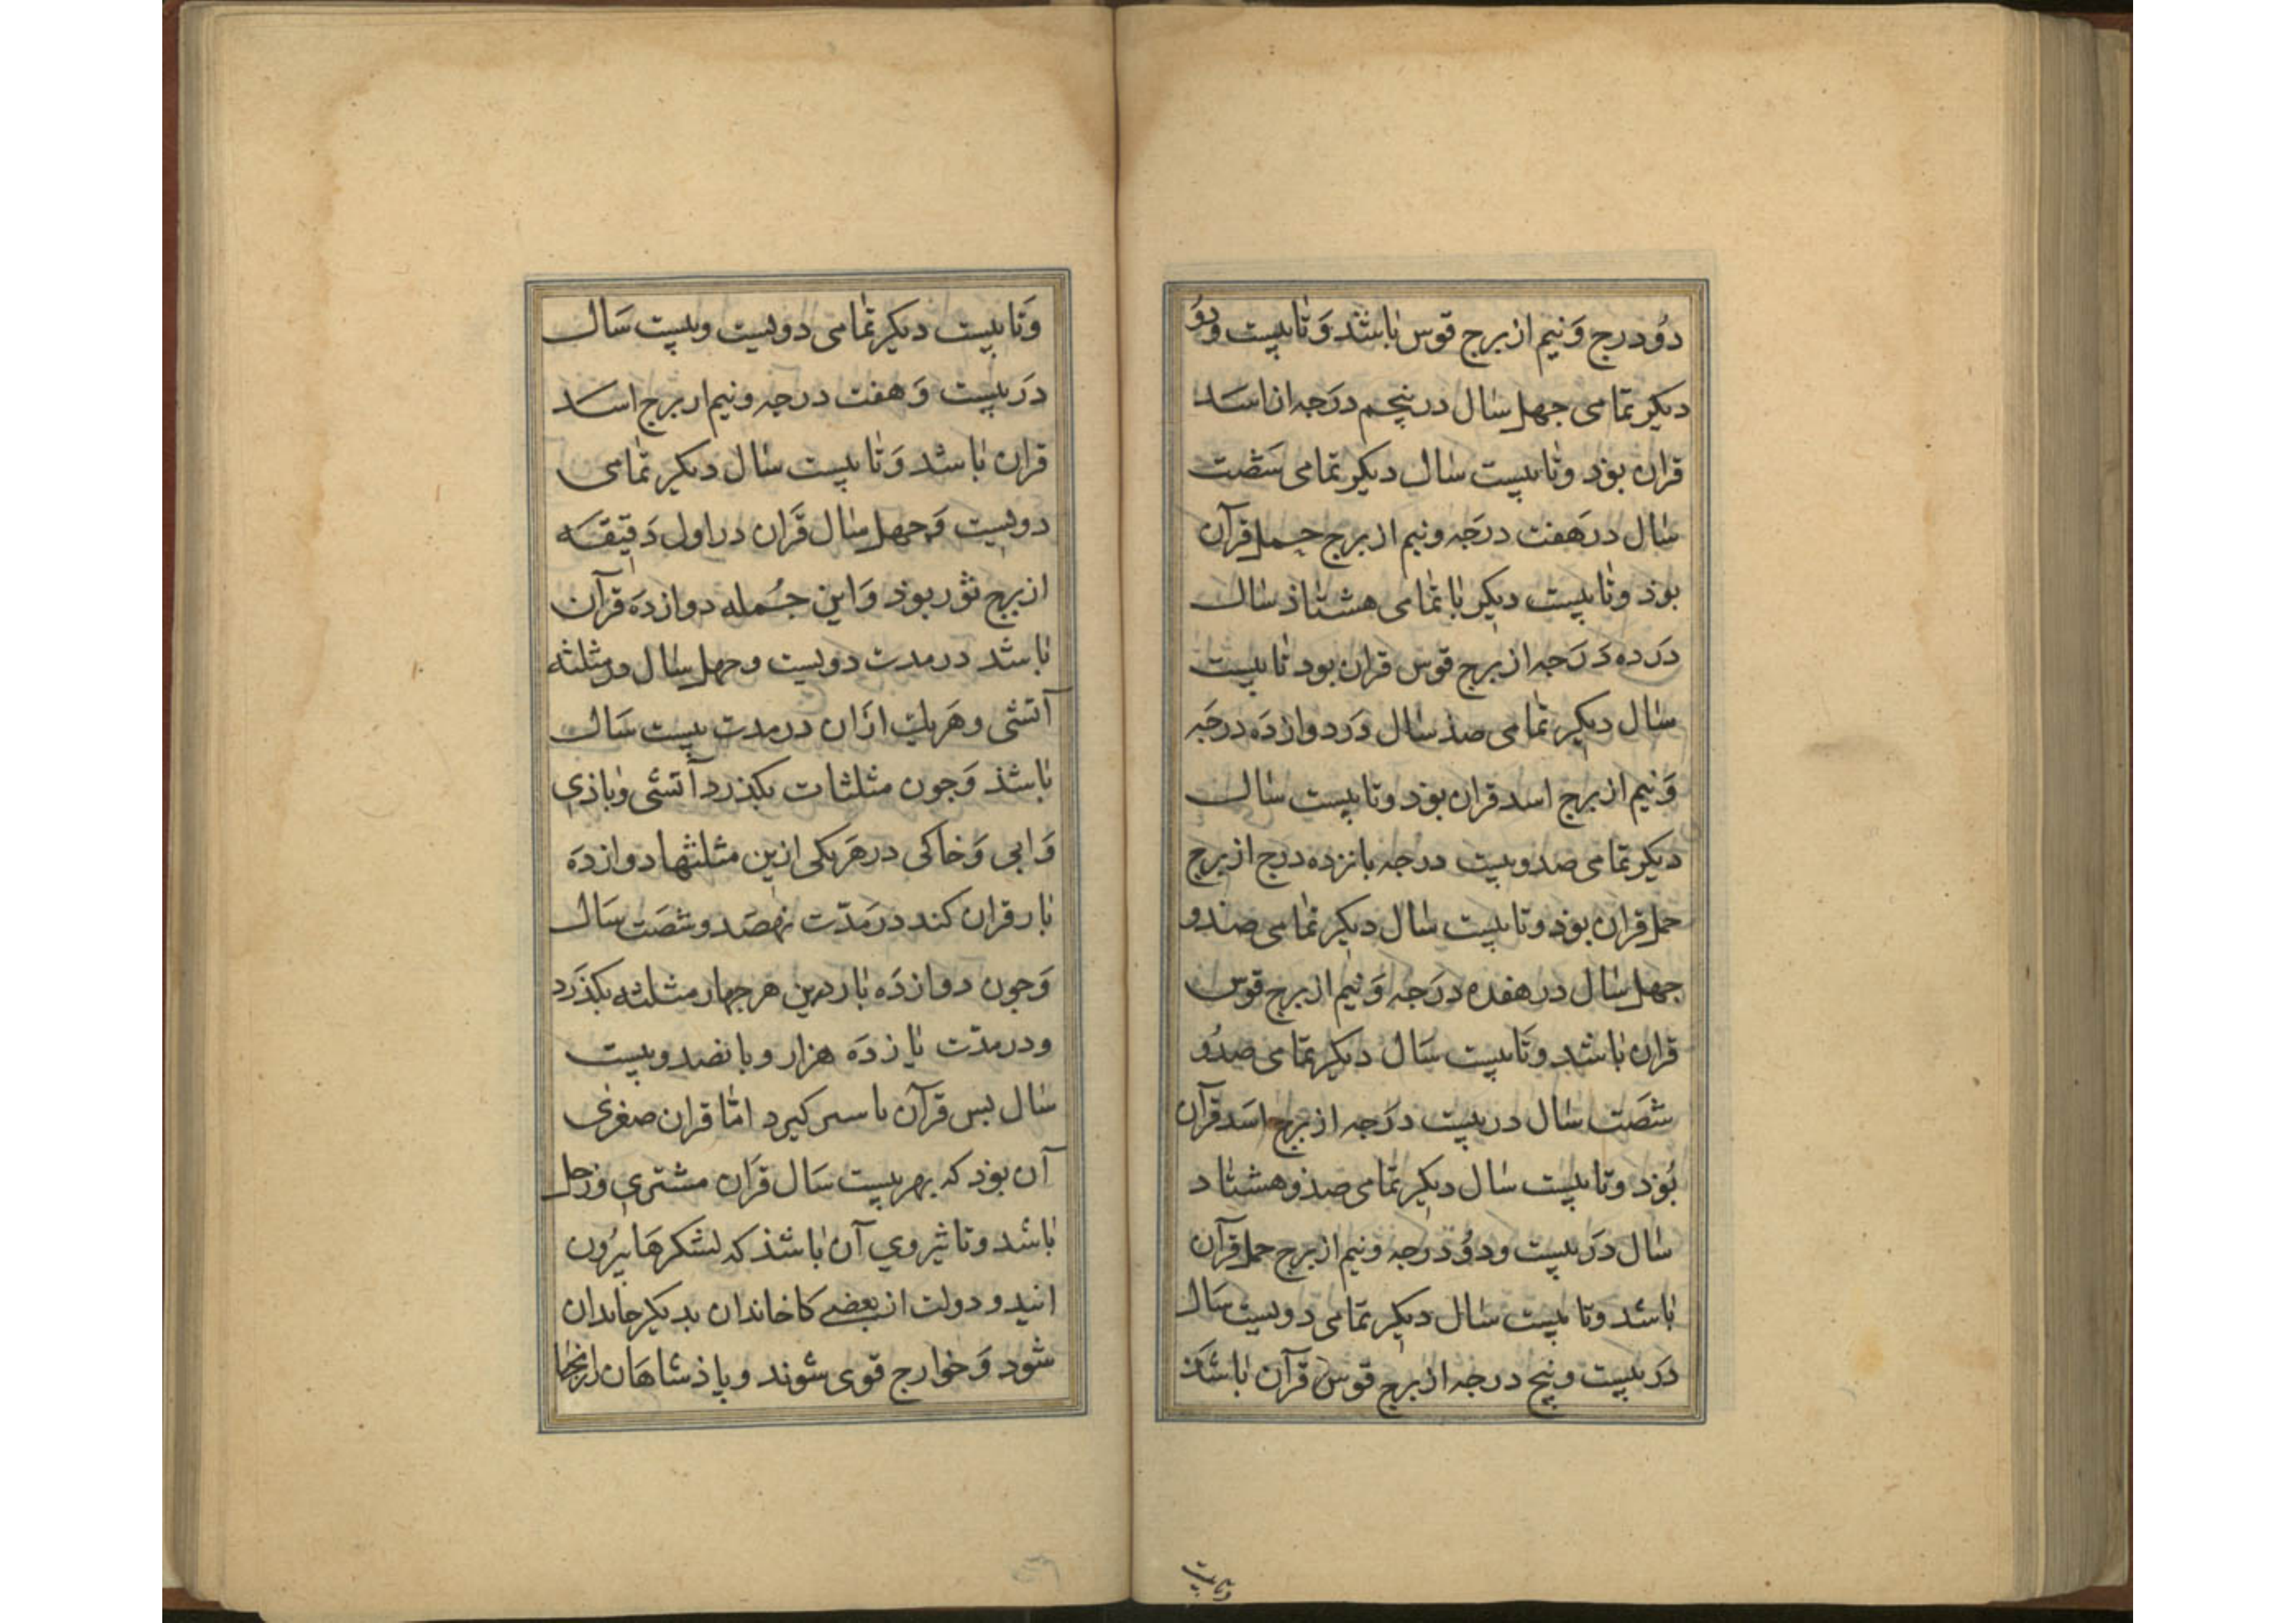 دُو درج وَنیم از برج قوس باشد وَتا بیست ودو
دیکر تمامی جهل سال در پنجم درَجه از اسَد
قران بوذ وتا بیست سال دیکر تمامی شصت
سال در هَفت درَجه ونیم از برج حمل قرآن
بوذ وتا بیست دیکر با تمامی هشتاذ سال
دَر ده دَرَجه از برج قوس قران بود تا بیست
سال دیکر تمامی صذ سال دَر دوازدَه درجَه
وَنیم از برج اسد قران بوذ وتا بیست سال
دیکر تمامی صد وبیست درجه بانزده درج از برج
حمل قران بوذ وتا بیست سال دیکر تمامی صذ و
جهل سال در هفده درَجه وَنیم از برج قوس
قران باشد وتا بیست سَال دیکر تمامی صد وُ
شصَت سال در بیست درَجه از برج اسَد قرآن
بُوذ وتا بیست سال دیکر تمامی صذ وهشتاد
سال دَر بیست ودوُ درجه ونیم از برج حمل قرآن
باشد وتا بیست سال دیکر تمامی دویست سَال
دَر بیست وپنج درجه از برج قوس قرآن باشذ
وتا بیست
وَتا بیست دیکر تمامی دویست وبیست سَال
دَر بیست وَهفت درجه ونیم از برج اسد
قران باشد وَتا بیست سال دیکر تمامی
دویست وَجهل سال قرَان در اول دَقیقه
از برج ثوَر بوذ وَاین جُمله دوازدَه قرآن
باشد در مدت دویست وجهل سال در مثلثه
آتشی وهَر یک ازان در مدت بیست سَال
باشذ وَجون مثلثات بکذرد آتشی وباذی
وَابی وَخاکی در هَریکی ازین مثلثها دوازدَه
بار قران کند در مَدّت نهصَد وشصَت سَال
وَجون دوازدَه بار درین هر جهار مثلثه بکذَرد
ودر مدّت یازدَه هزار وبانصد وبیست
سال بس قرآن با سر کیرد امّا قران صغری
آن بوذ که بهر بیست سَال قرَان مشتری وزحل
باشد وتاثیر وی آن باشذ که لشکرهَا بیرُون
انید ودولت از بعضی کاخاندان بدیکر خاندان
شود وَخوارج قوی شوند وپاذشاهَان ازنجا